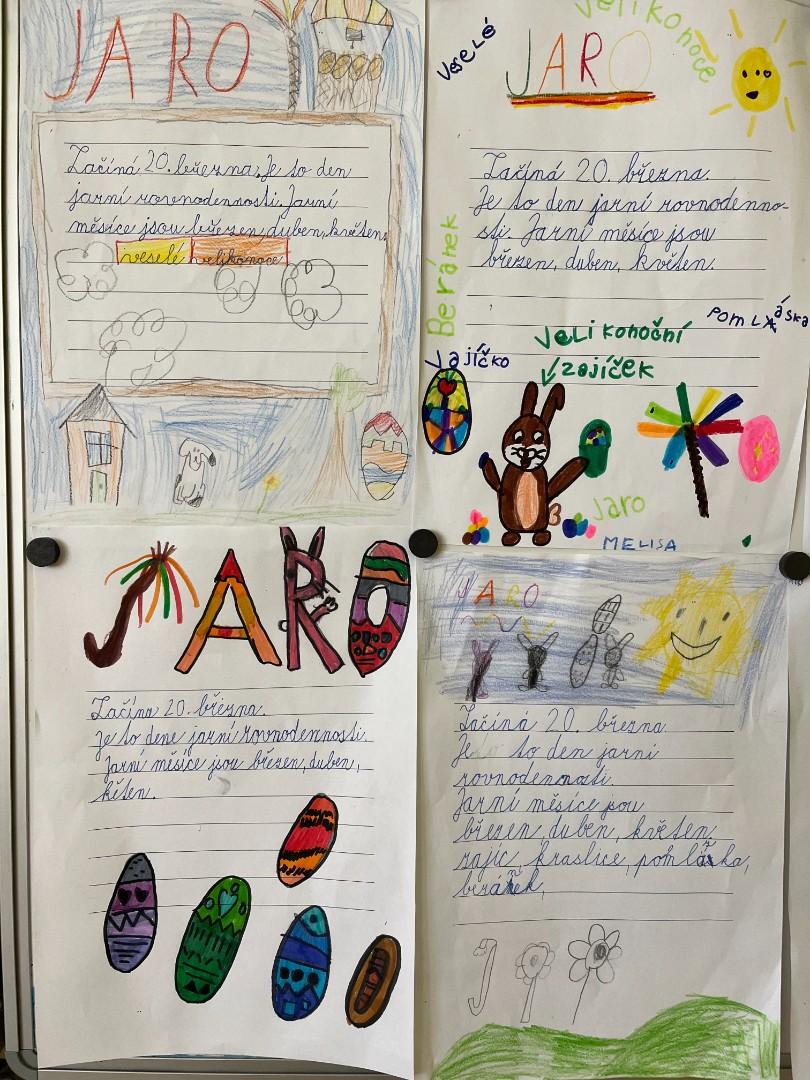 JARO
Začíná 20. března. Je to den
jarní rovnodennosti. Jarní
měsíce jsou březen, duben, květen.
veselé velikonoce
Veselé
Velikonoce
JARO
Začíná 20. března.
Je to den jarní rovnodenno-
sti. Jarní měsíce jsou
březen, duben, květen.
Beránek
pomLáska
Velikonoční
zajíček
Vajíčko
Jaro
MELISA
JARO
Začína 20. března.
je to dene jarní rovnodennosti.
Jarní měsíce jsou březen, duben,
kěten.
JARO
Začíná 20. března.
Je to den jarní
rovnodennosti.
Jarní měsíce jsou
březen, duben, květen,
zajíc, kraslice, pomlázka,
beránek,